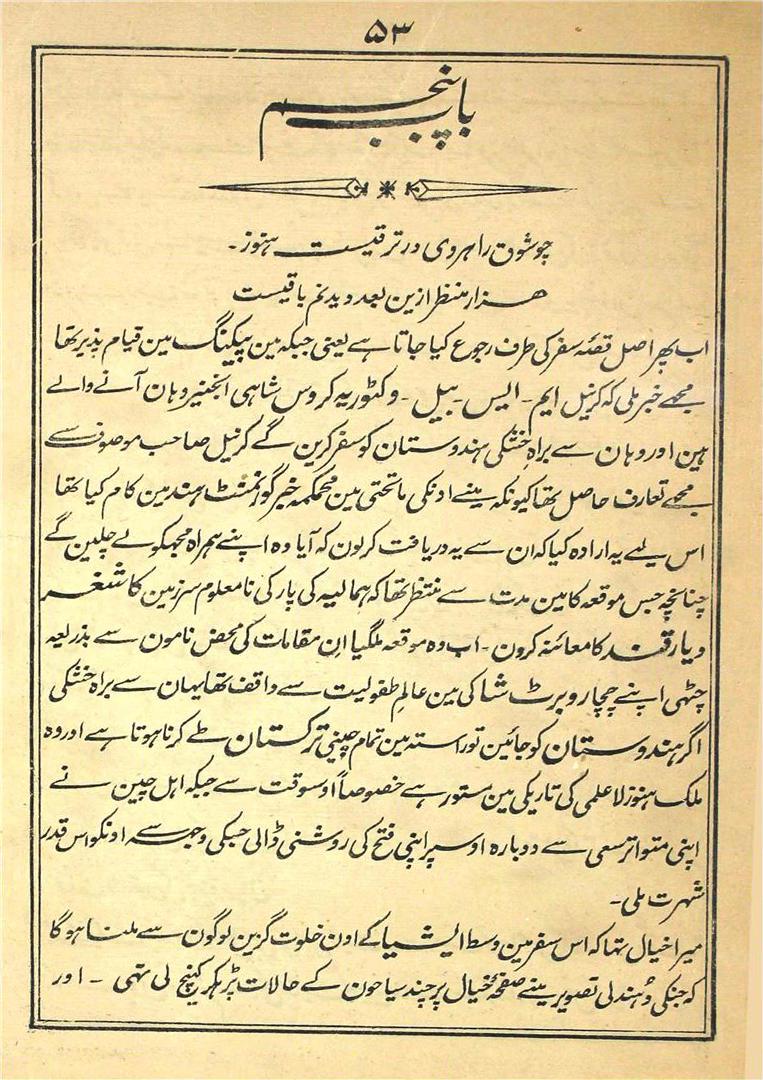 ۵۳
باب پنجم
چو شوق راہروی در ترقیست ہنوز ۔
ہزار منظر ازین بعد دیدنم باقیست
اب پھر اصل قصّہ سفر کی طرف رجوع کیا جاتا ہے یعنی جبکہ مین پیکینگ مین قیام پذیر تھا
مجھے خبر ملی کہ کرنیل ایم ۔ ایس ۔ بیل ۔ وکٹوریہ کروس شاہی انجنیر وہان آنے والے
ہین اور وہان سے براہ خشکی ہندوستان کو سفر کرین گے کرنیل صاحب موصوف سے
مجھے تعارف حاصل تھا کیونکہ مینے اونکی ماتحتی مین محکمہ خبر گورنمنٹ ہند مین کام کیا تھا
اس لیے یہ ارادہ کیا کہ ان سے یہ دریافت کر لون کہ آیا وہ اپنے ہمراہ مجھکو لے چلین گے
چنانچہ جس موقعہ کا مین مدت سے منتظر تھا کہ ہمالیہ کی پار کی نا معلوم سرزمین کاشغر
و یارقند کا معائنہ کرون ۔ اب وہ موقعہ ملگیا ان مقامات کی محض نامون سے بذریعہ
چٹھی اپنے چچا روبرٹ شا کی مین عالم طفولیت سے واقف تھا یہان سے براہ خشکی
اگر ہندوستان کو جائین تو راستہ مین تمام چینی ترکستان طے کرنا ہوتا ہے اور وہ
ملک ہنوز لا علمی کی تاریکی مین مستور ہے خصوصاً اوسوقت سے جبکہ اہل چین نے
اپنی متواتر سعی سے دوبارہ اوسپر اپنی فتح کی روشنی ڈالی جسکی وجہ سے اونکو اس قدر
شہرت ملی ۔
میرا خیال تھا کہ اس سفر مین وسط ایشیا کے اون خلوت گزین لوگون سے ملنا ہوگا
کہ جنکی دُھندلی تصویر مینے صفحۂ خیال پر چند سیاحون کے حالات پڑہکر کہینچ لی تہی ۔ اور